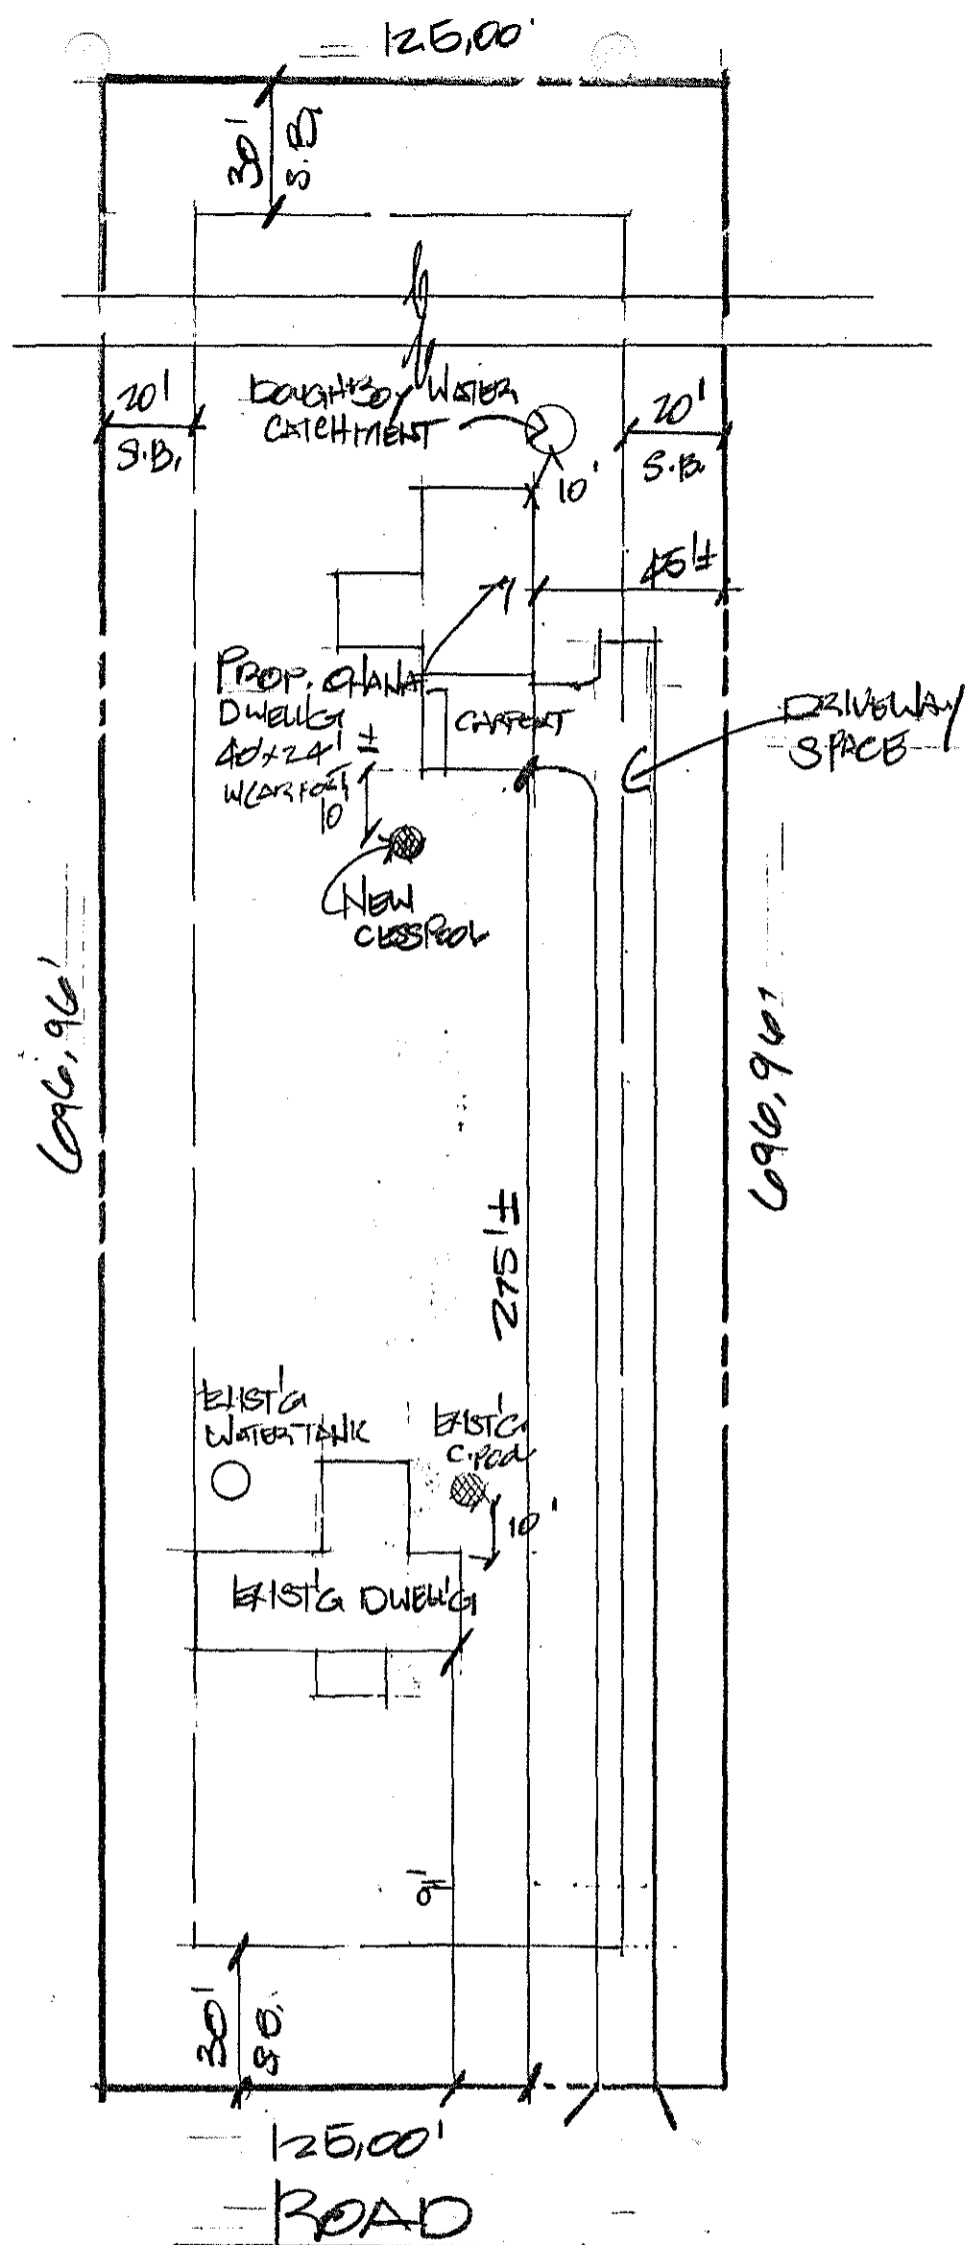 125.00'
30'
S.B.
20'
S.B.
DOUGHBOY WATER
CATCHMENT
10'
20'
S.B.
45'±
PROP. OHANA
DWELL'G
40'x24'±
W/CARPORT
CARPORT
10'
DRIVEWAY
SPACE
NEW
CESSPOOL
696.96'
696.96'
275'±
EXIST'G
WATER TANK
EXIST'G
C.POOL
10'
EXIST'G DWELL'G
30'
S.B.
125.00'
ROAD